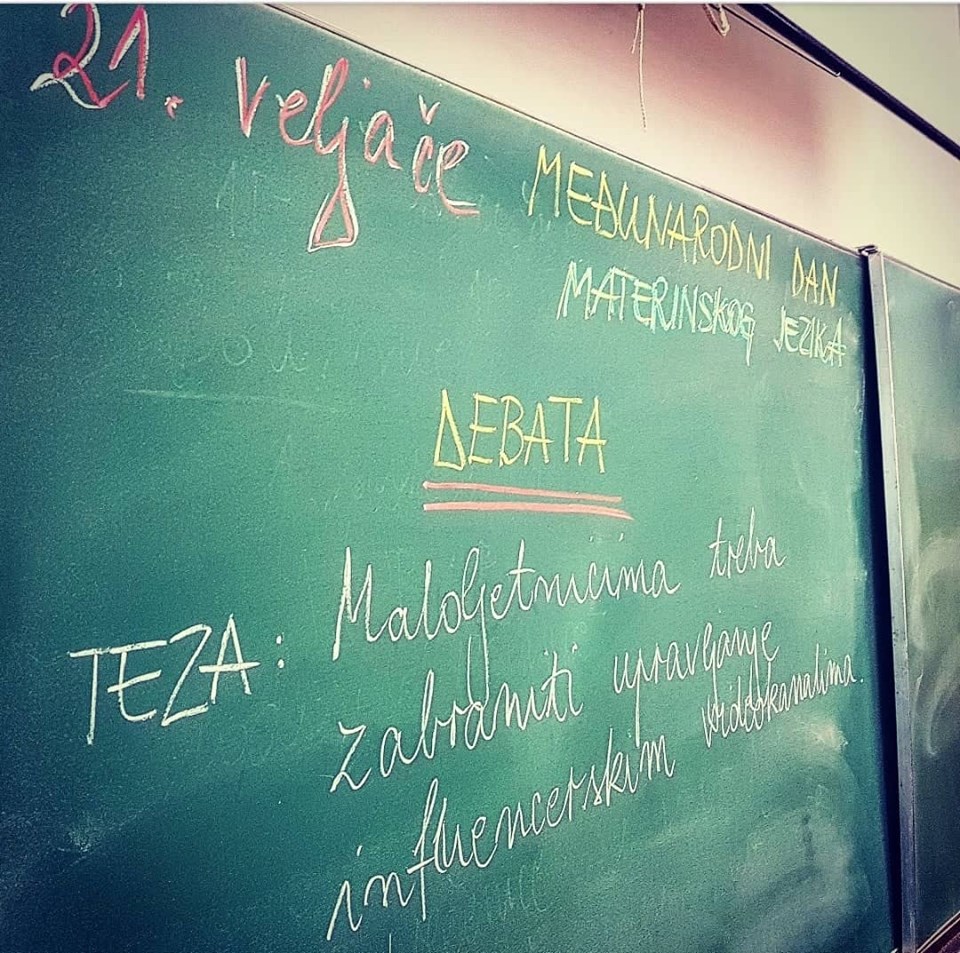 21. veljače
MEĐUNARODNI DAN
MATERINSKOG JEZIKA
DEBATA
TEZA: Maloljetnicima treba
zabraniti upravljanje
influencerskim videokanalima.